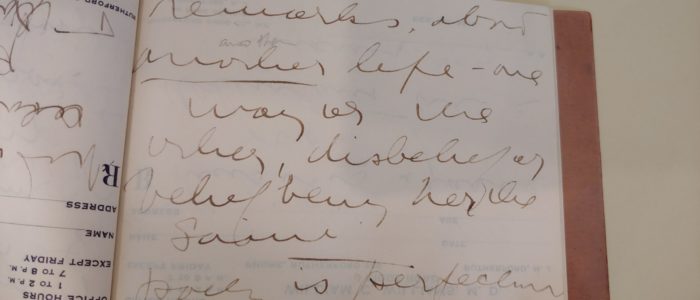 OFFICE HOURS
1 TO 2 P.M.
7 TO 8 P.M.
EXCEPT FRIDAY
NAME
ADDRESS
℞
RUTHERFORD
remarks, about
another
another life - one
way or the
other, disbelief or
belief being the
same
is perfection